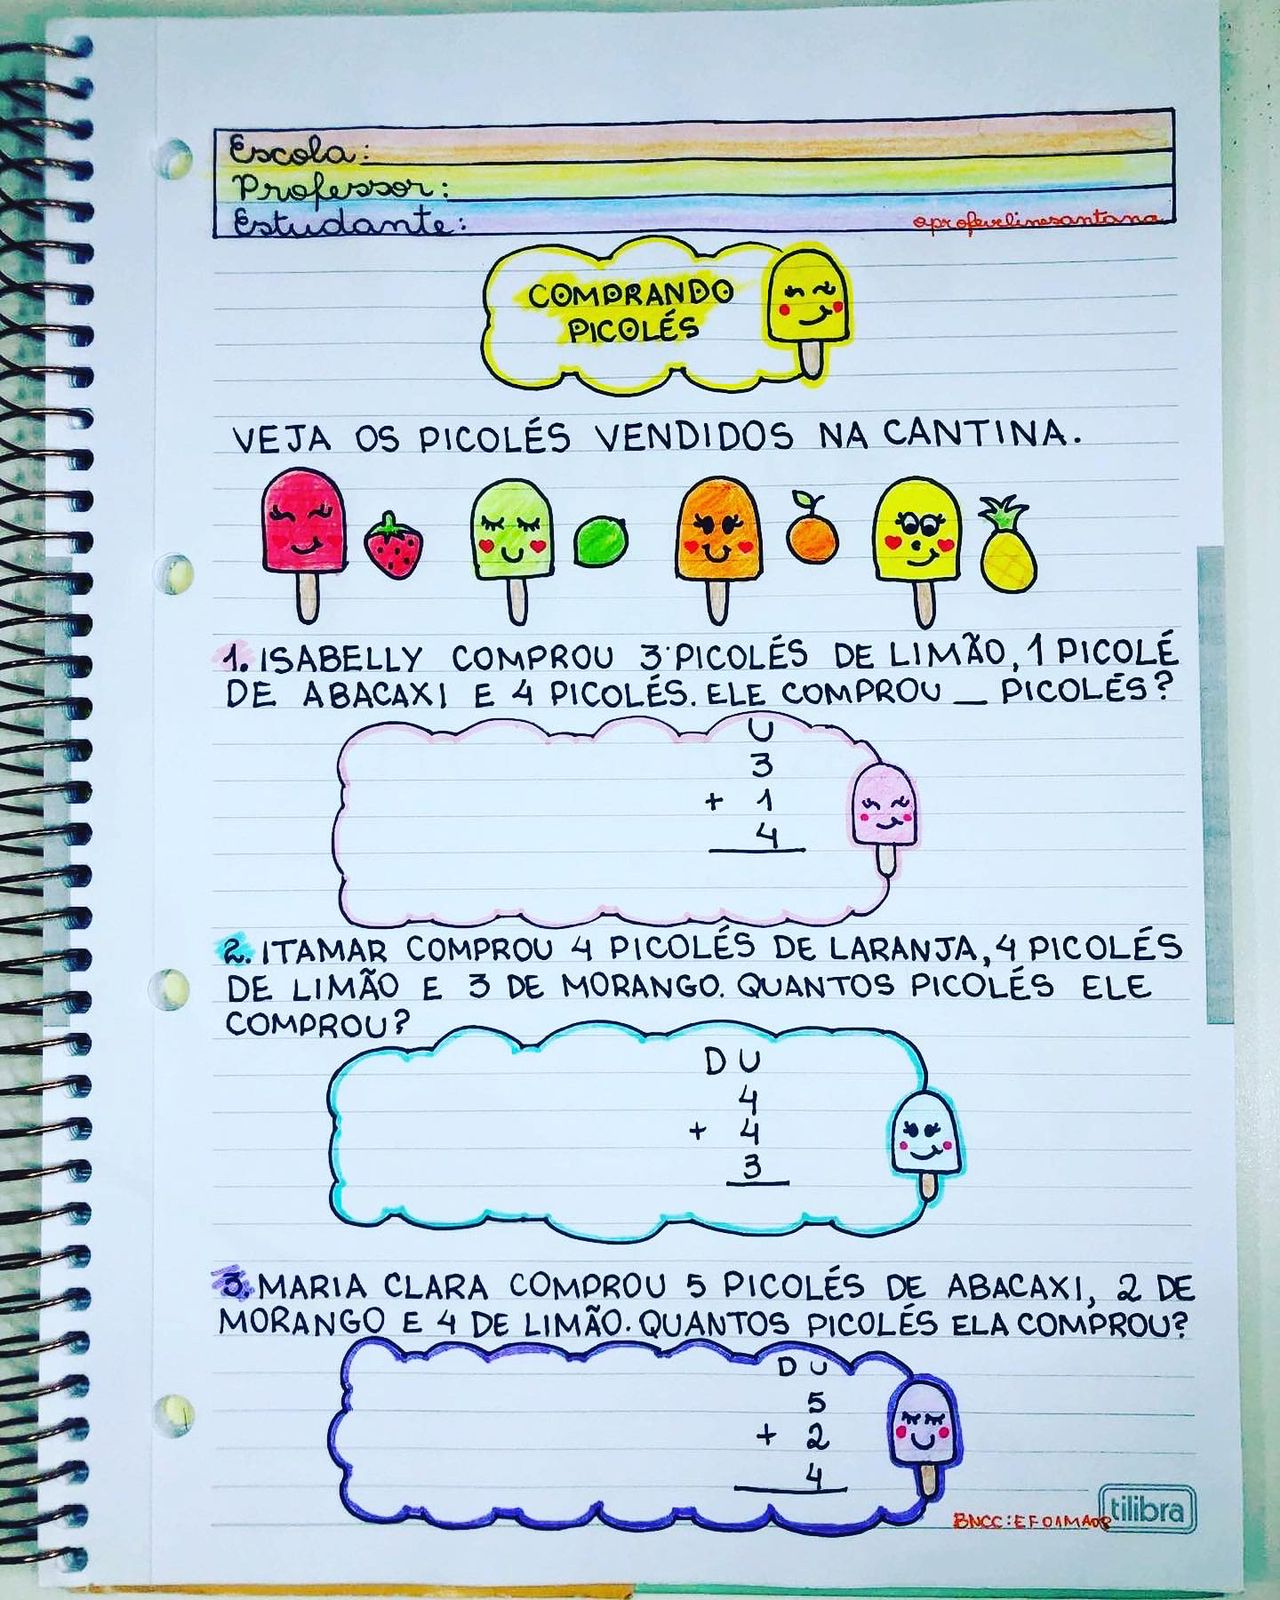 Escola:
Professor:
Estudante:
@profevelinesantana
COMPRANDO
PICOLÉS
VEJA OS PICOLÉS VENDIDOS NA CANTINA.
1. ISABELLY COMPROU 3 PICOLÉS DE LIMÃO, 1 PICOLÉ
DE ABACAXI E 4 PICOLÉS. ELE COMPROU __ PICOLÉS?
U
3
+ 1
4
2. ITAMAR COMPROU 4 PICOLÉS DE LARANJA, 4 PICOLÉS
DE LIMÃO E 3 DE MORANGO. QUANTOS PICOLÉS ELE
COMPROU?
D U
4
+ 4
3
3. MARIA CLARA COMPROU 5 PICOLÉS DE ABACAXI, 2 DE
MORANGO E 4 DE LIMÃO. QUANTOS PICOLÉS ELA COMPROU?
D U
5
+ 2
4
BNCC: EF01MA08
tilibra